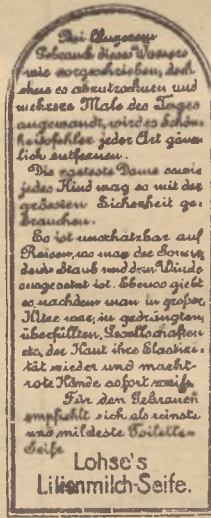 Bei
Gebrauch dieses Wassers
wie vorgeschrieben, doch
ohne es abzutrocknen und
mehrere Male des Tages
angewandt, wird es Schön-
heitsfehler jeder Art gänz-
lich entfernen.
Die zarteste Dame sowie
jedes Kind mag es mit der
grössten Sicherheit ge-
brauchen.
Es ist unschätzbar auf
Reisen, wo man der Sonne,
dem Staub und dem Winde
ausgesetzt ist. Ebenso giebt
es, nachdem man in großer
Hitze war, in gedrängten,
überfüllten, Gesellschaften
etc, der Haut ihre Elastizi-
tät wieder und macht
rote Hände sofort weiß.
Für den Gebrauch
empfiehlt sich als reinste
und mildeste Toiletten-
Seife
Lohse's
Lilienmilch-Seife.